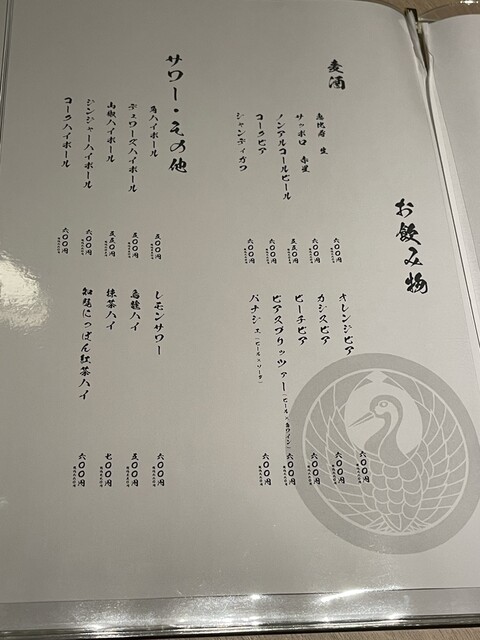 お飲み物
麦酒
恵比寿 生 六〇〇円
サッポロ 赤星 六〇〇円
ノンアルコールビール 五五〇円
コークビア 六〇〇円
シャンディガフ 六〇〇円
オレンジビア 六〇〇円
カシスビア 六〇〇円
ピーチビア 六〇〇円
ビアスプリッツァー（ビール×白ワイン） 六〇〇円
パナシェ（ビール×ソーダ） 六〇〇円
サワー・その他
ハイボール 五〇〇円
デュワーズハイボール 五〇〇円
山椒ハイボール 五五〇円
ジンジャーハイボール 六〇〇円
コークハイボール 六〇〇円
レモンサワー 六〇〇円
烏龍ハイ 五〇〇円
抹茶ハイ 七〇〇円
知覧にっぽん紅茶ハイ 六〇〇円